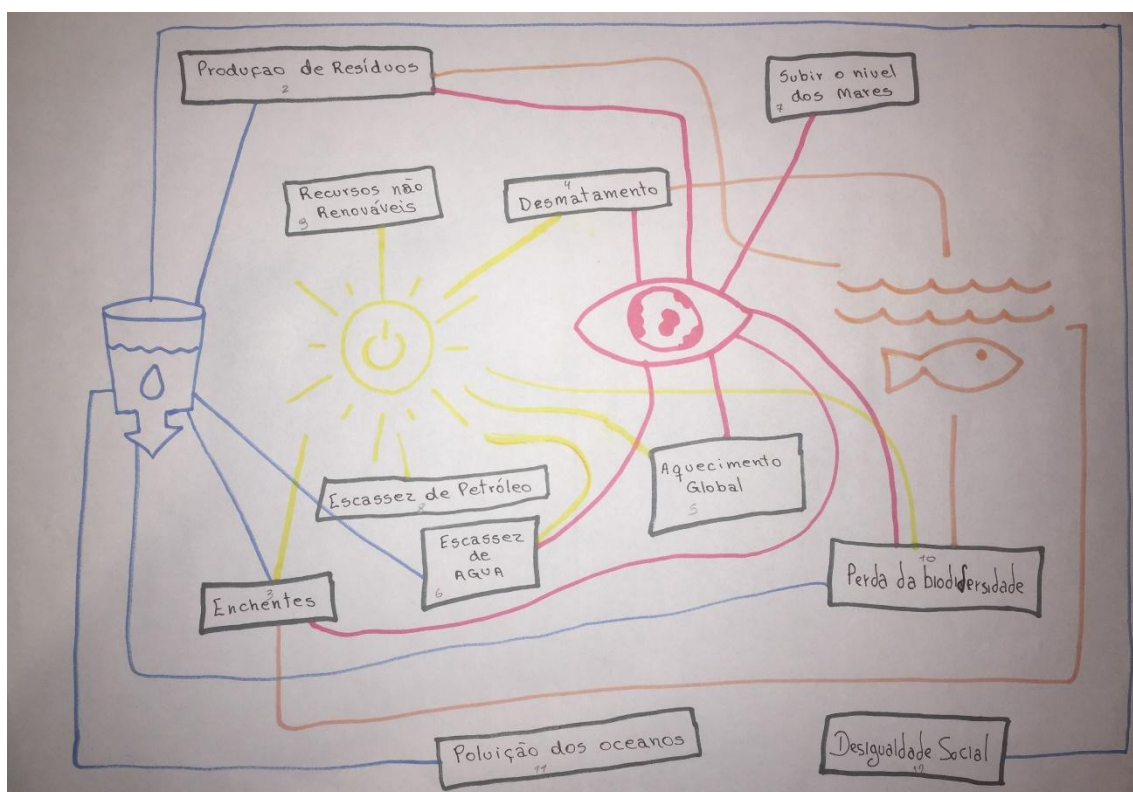 Produçao de Resíduos
2
Subir o nivel
dos Mares
7
Recursos não
Renováveis
9
4
Desmatamento
Escassez de Petróleo
8
Aquecimento
Global
5
Escassez
de
AGUA
6
Enchentes
3
10
Perda da biodifersidade
Poluição dos oceanos
11
Desigualdade Social